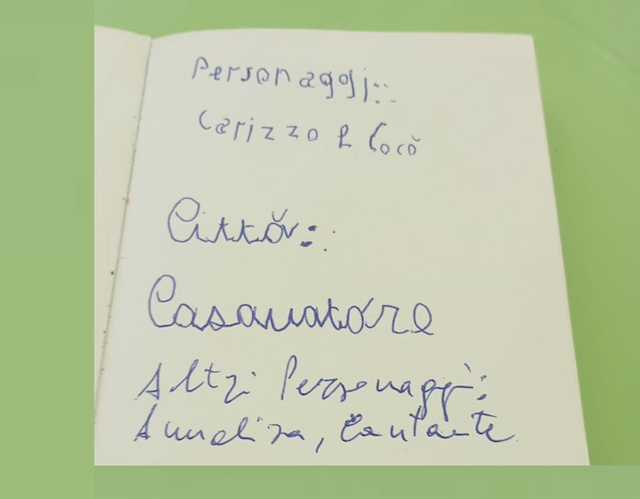 Personaggi::
Carizzo e Cocò
Città::
Casavatóre
Altri Personaggi:
Annalisa, Cantante